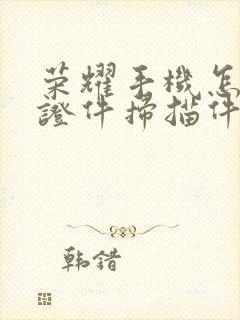 荣耀手機怎
證件掃描件
韩錯